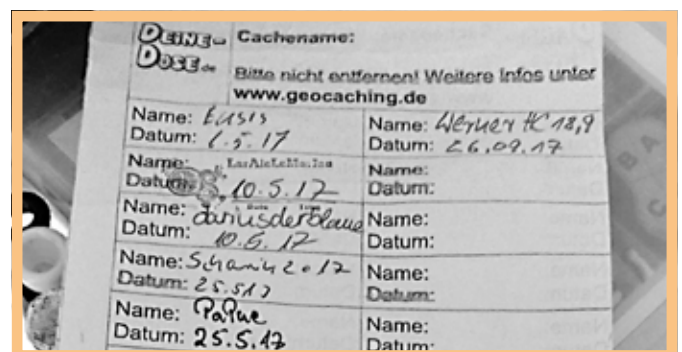 DEINE-
DOSE.de
Cachename:
Bitte nicht entfernen! Weitere Infos unter
www.geocaching.de
Name: Eusis
Datum: 1.5.17
Name:
Datum: 10.5.17
Name: dariusderblaue
Datum: 10.5.17
Name: Schanic2017
Datum: 25.517
Name: PaPue
Datum: 25.5.17
Name: Werner HC 18,9
Datum: 26.09.17
Name:
Datum:
Name:
Datum:
Name:
Datum:
Name:
Datum: